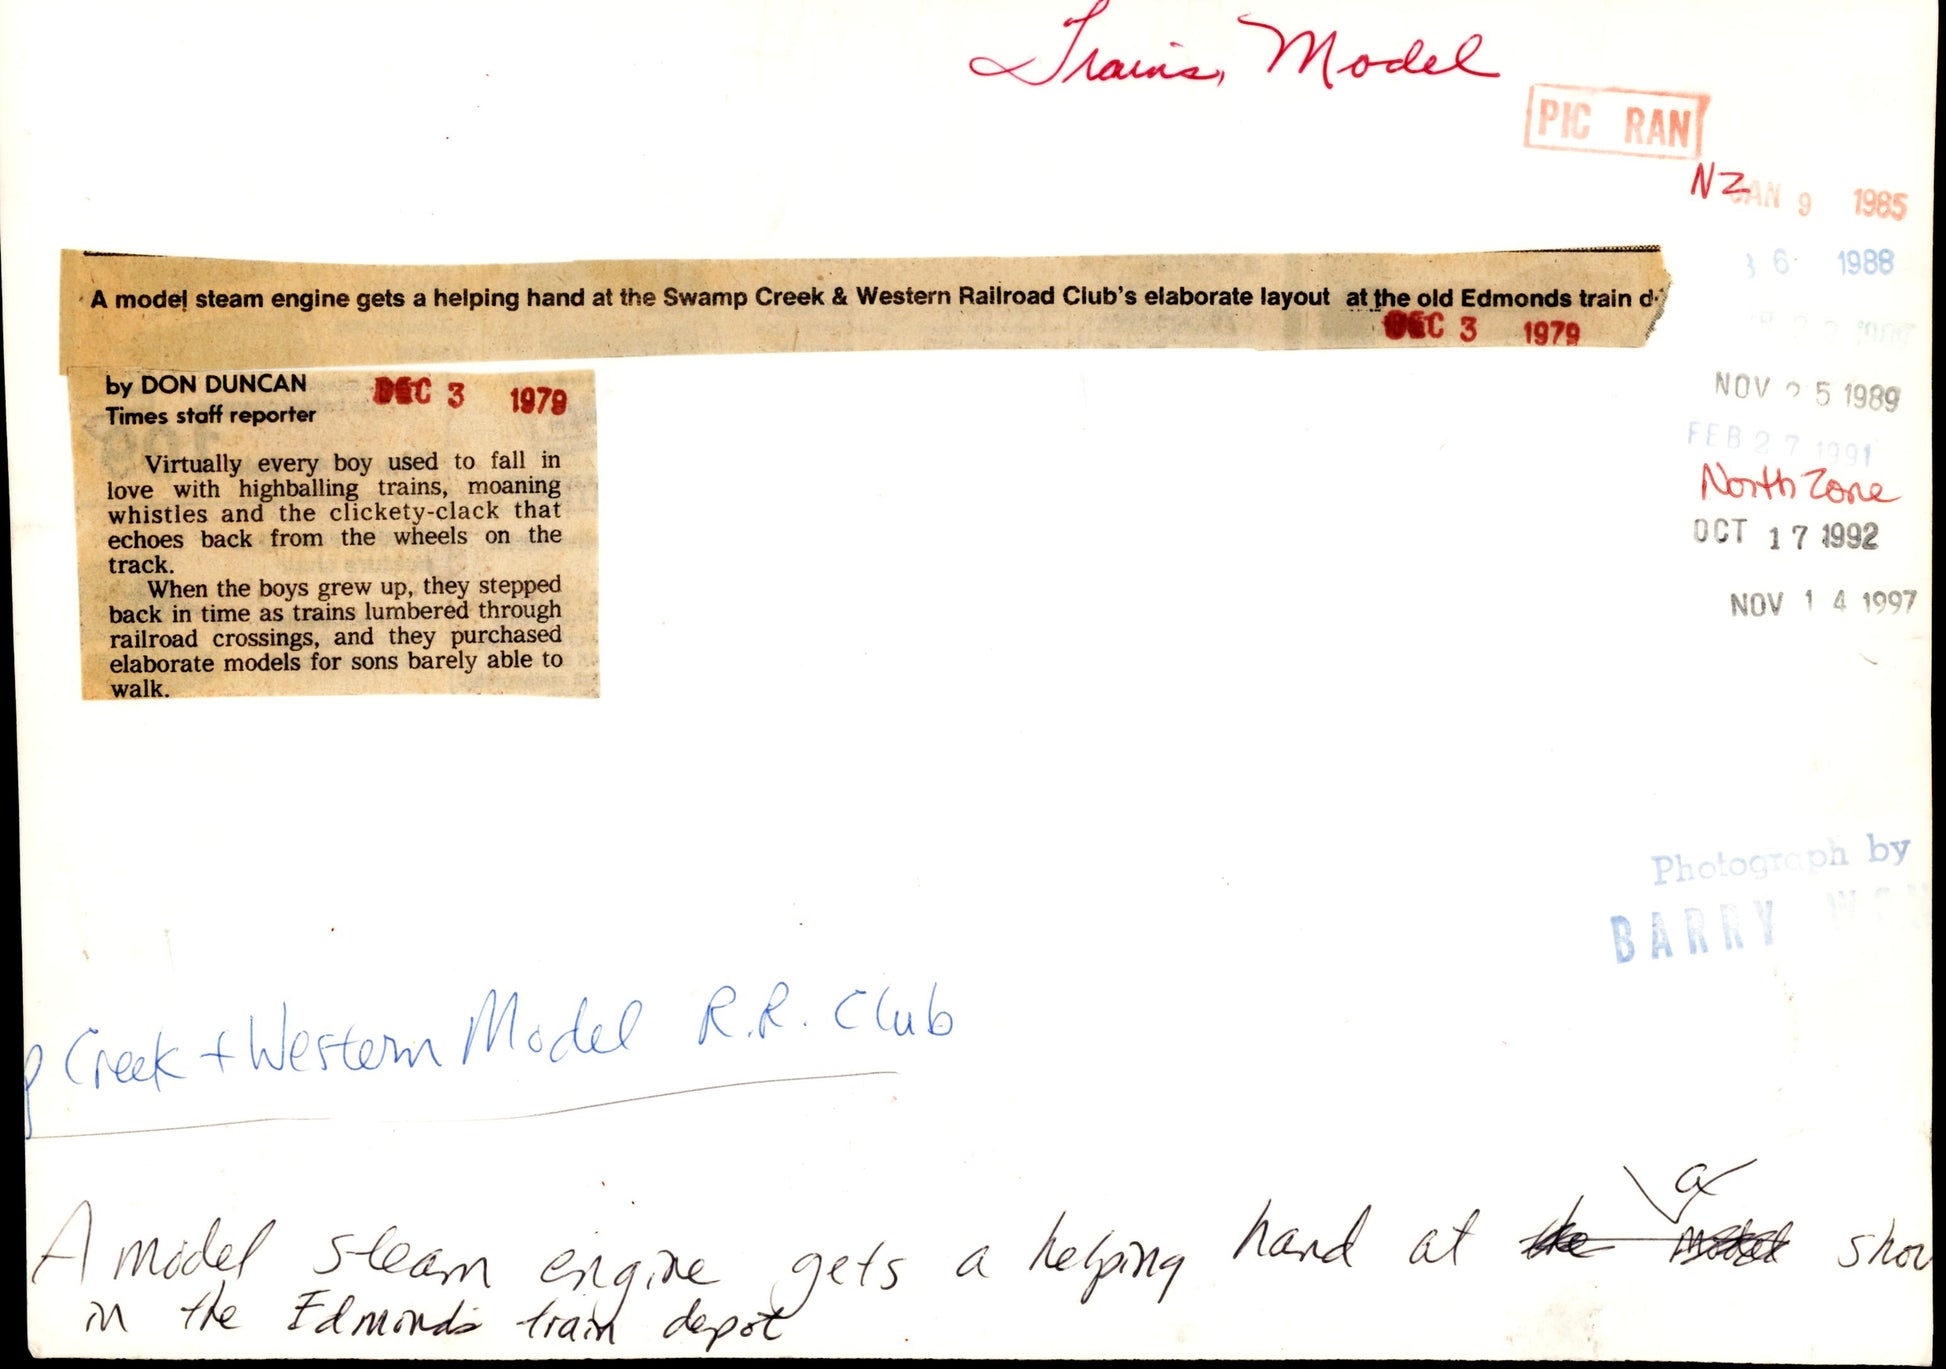 Trains, Model
PIC RAN
NZ
JAN 9 1985
6 1988
A model steam engine gets a helping hand at the Swamp Creek & Western Railroad Club's elaborate layout at the old Edmonds train d
DEC 3 1979
by DON DUNCAN
Times staff reporter
DEC 3 1979
Virtually every boy used to fall in
love with highballing trains, moaning
whistles and the clickety-clack that
echoes back from the wheels on the
track.
When the boys grew up, they stepped
back in time as trains lumbered through
railroad crossings, and they purchased
elaborate models for sons barely able to
walk.
NOV 25 1989
FEB 27 1991
North Zone
OCT 17 1992
NOV 14 1997
Photograph by
BARRY
Creek + Western Model R.R. Club
a
A model steam engine gets a helping hand at the model show
in the Edmonds train depot